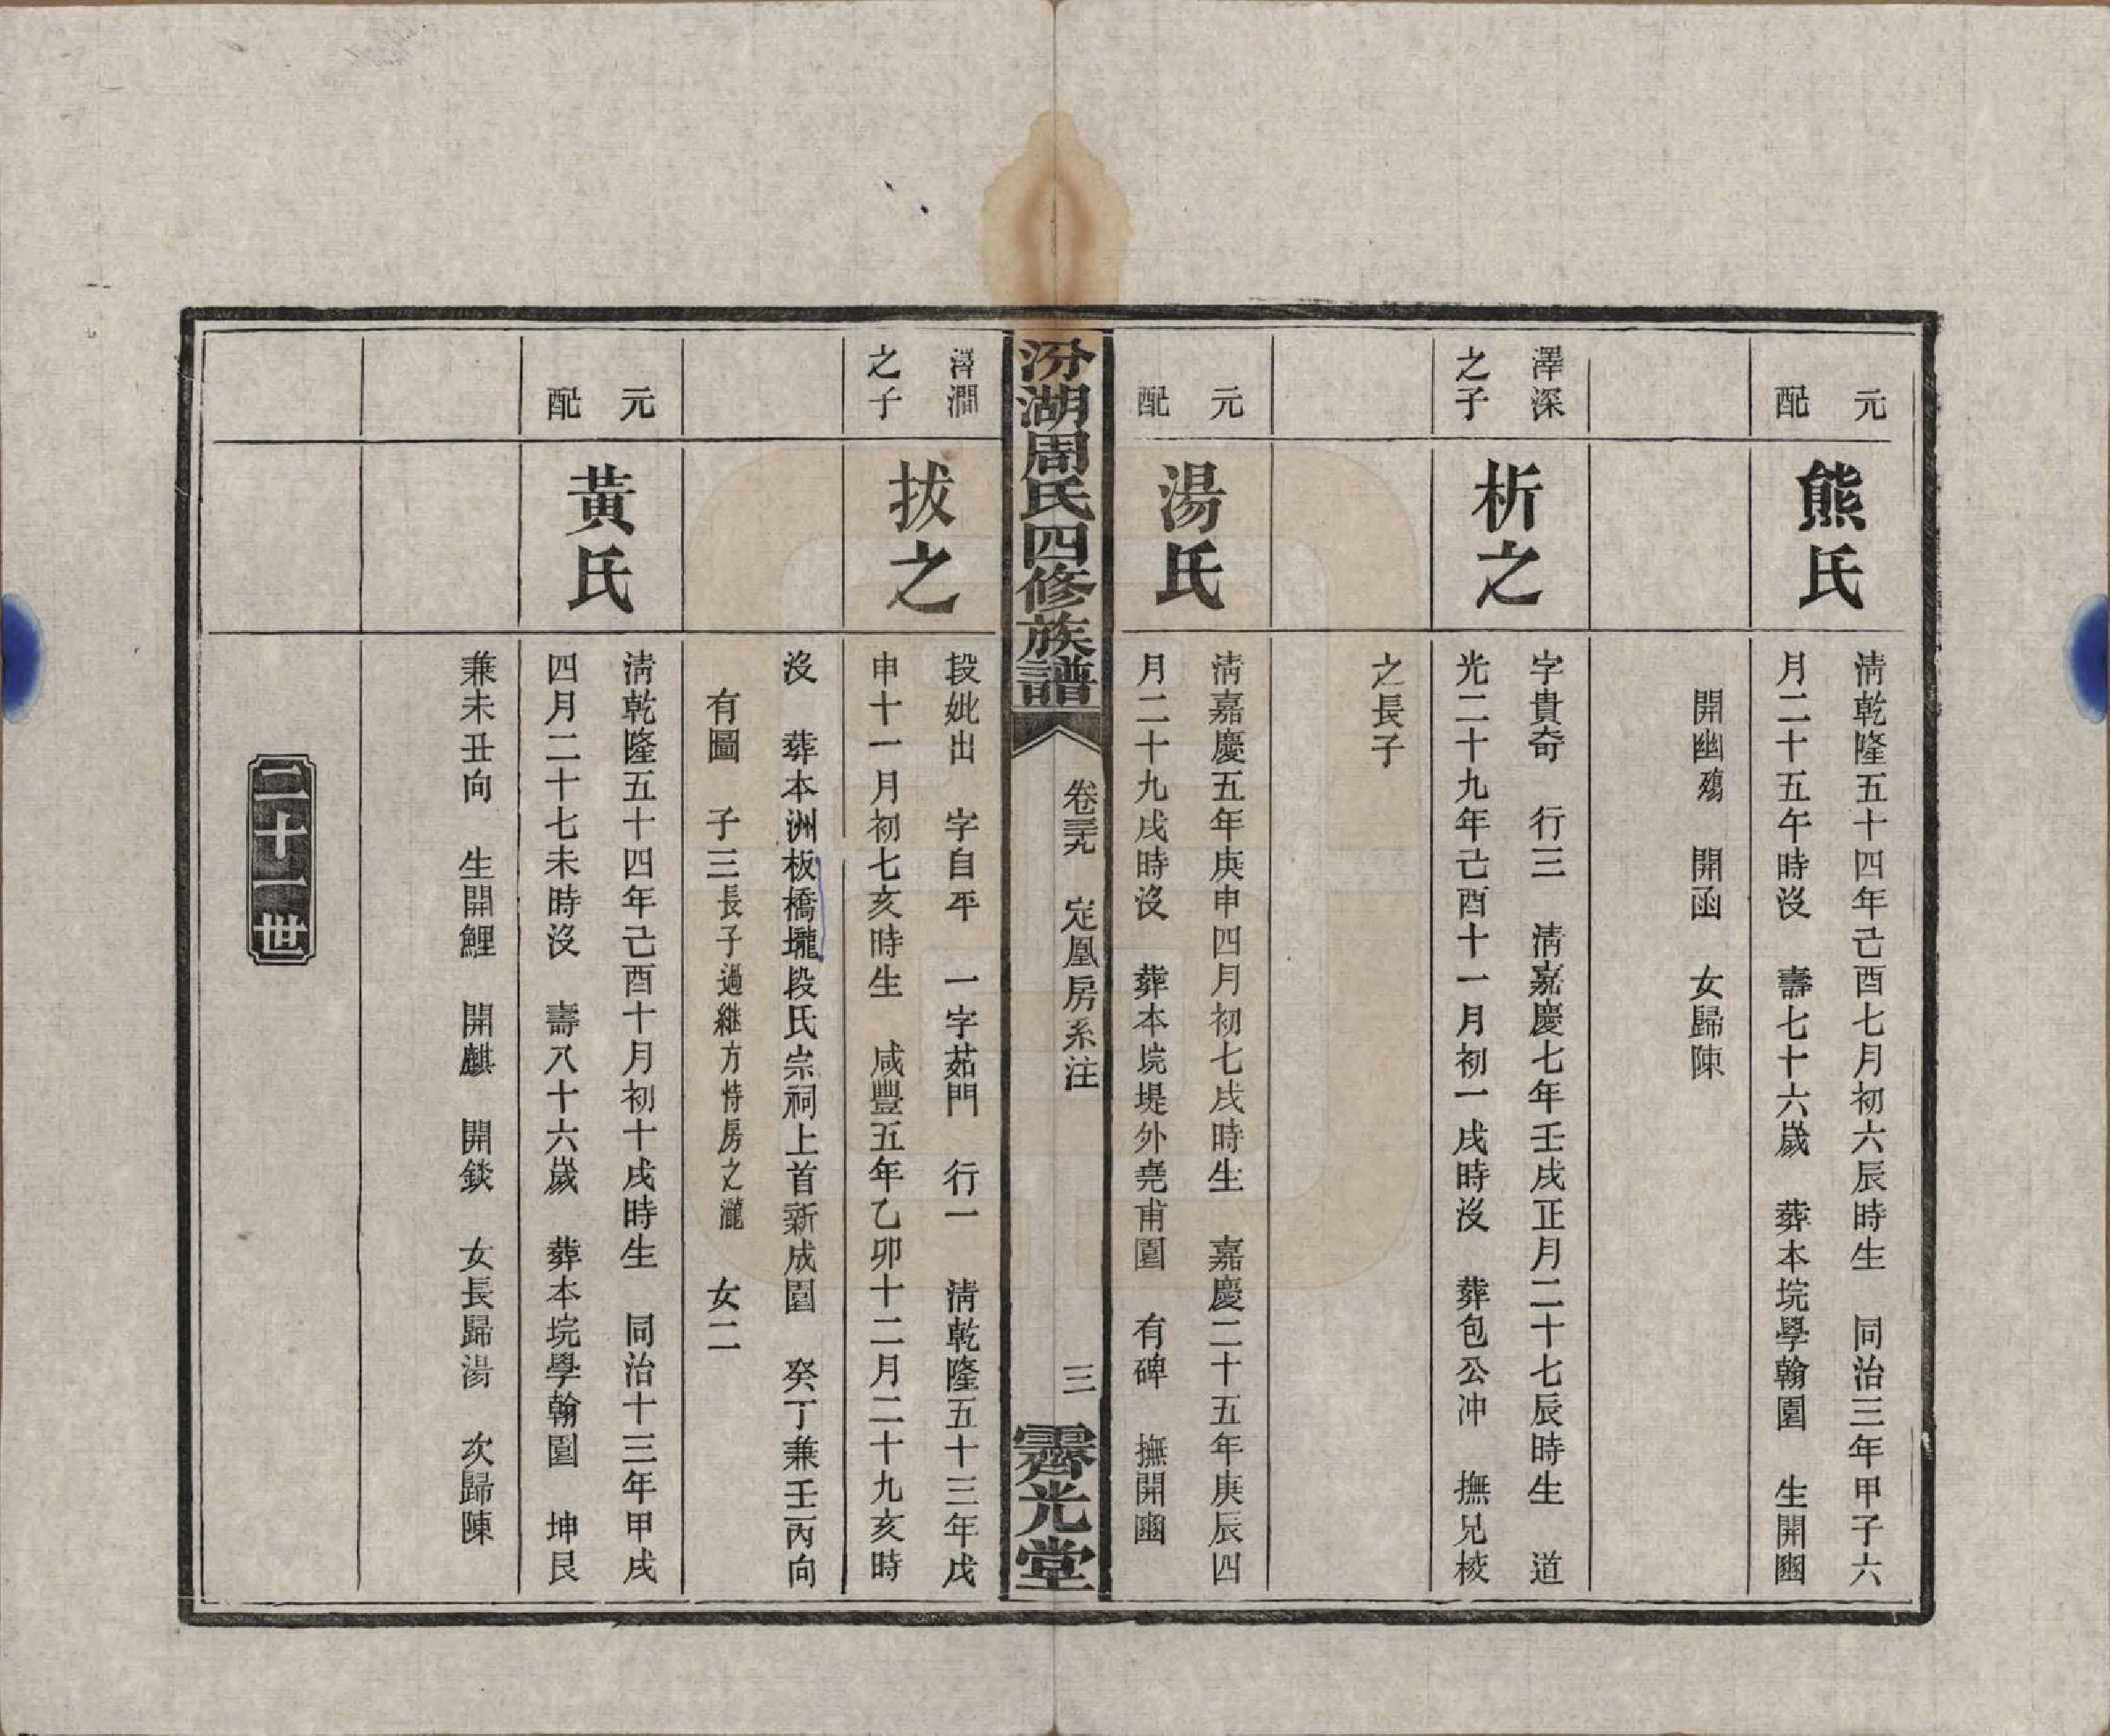 元配
熊氏
淸乾隆五十四年己酉七月初六辰時生　同治三年甲子六
月二十五午時沒　壽七十六歲　葬本垸學翰園　生開豳
開幽殤　開函　女歸陳
澤深之子
析之
字貴奇　行三　淸嘉慶七年壬戌正月二十七辰時生　道
光二十九年己酉十一月初一戌時沒　葬包公冲　撫兄棱
之長子
元配
湯氏
淸嘉慶五年庚申四月初七戌時生　嘉慶二十五年庚辰四
月二十九戌時沒　葬本垸堤外堯甫園　有碑　撫開豳
汾湖周氏四修族譜
卷三十九　定凰房系注
三
霽光堂
澤澗之子
拔之
段妣出　字自平　一字茹門　行一　淸乾隆五十三年戊
申十一月初七亥時生　咸豐五年乙卯十二月二十九亥時
沒　葬本洲板橋壠段氏宗祠上首新成園　癸丁兼壬丙向
有圖　子三長子過継方恃房之瀧　女二
元配
黃氏
淸乾隆五十四年己酉十月初十戌時生　同治十三年甲戌
四月二十七未時沒　壽八十六歲　葬本垸學翰園　坤艮
兼未丑向　生開鯉　開麒　開錟　女長歸湯　次歸陳
二十一世